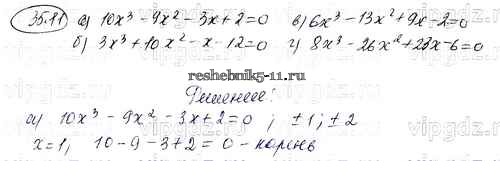 35.11 а) 10x³ - 9x² - 3x + 2 = 0 в) 6x³ - 13x² + 9x - 2 = 0
б) 3x³ + 10x² - x - 12 = 0 г) 8x³ - 26x² + 23x - 6 = 0
reshebnik5-11.ru
Решение:
а) 10x³ - 9x² - 3x + 2 = 0 ; ±1; ±2
x = 1, 10 - 9 - 3 + 2 = 0 - корень